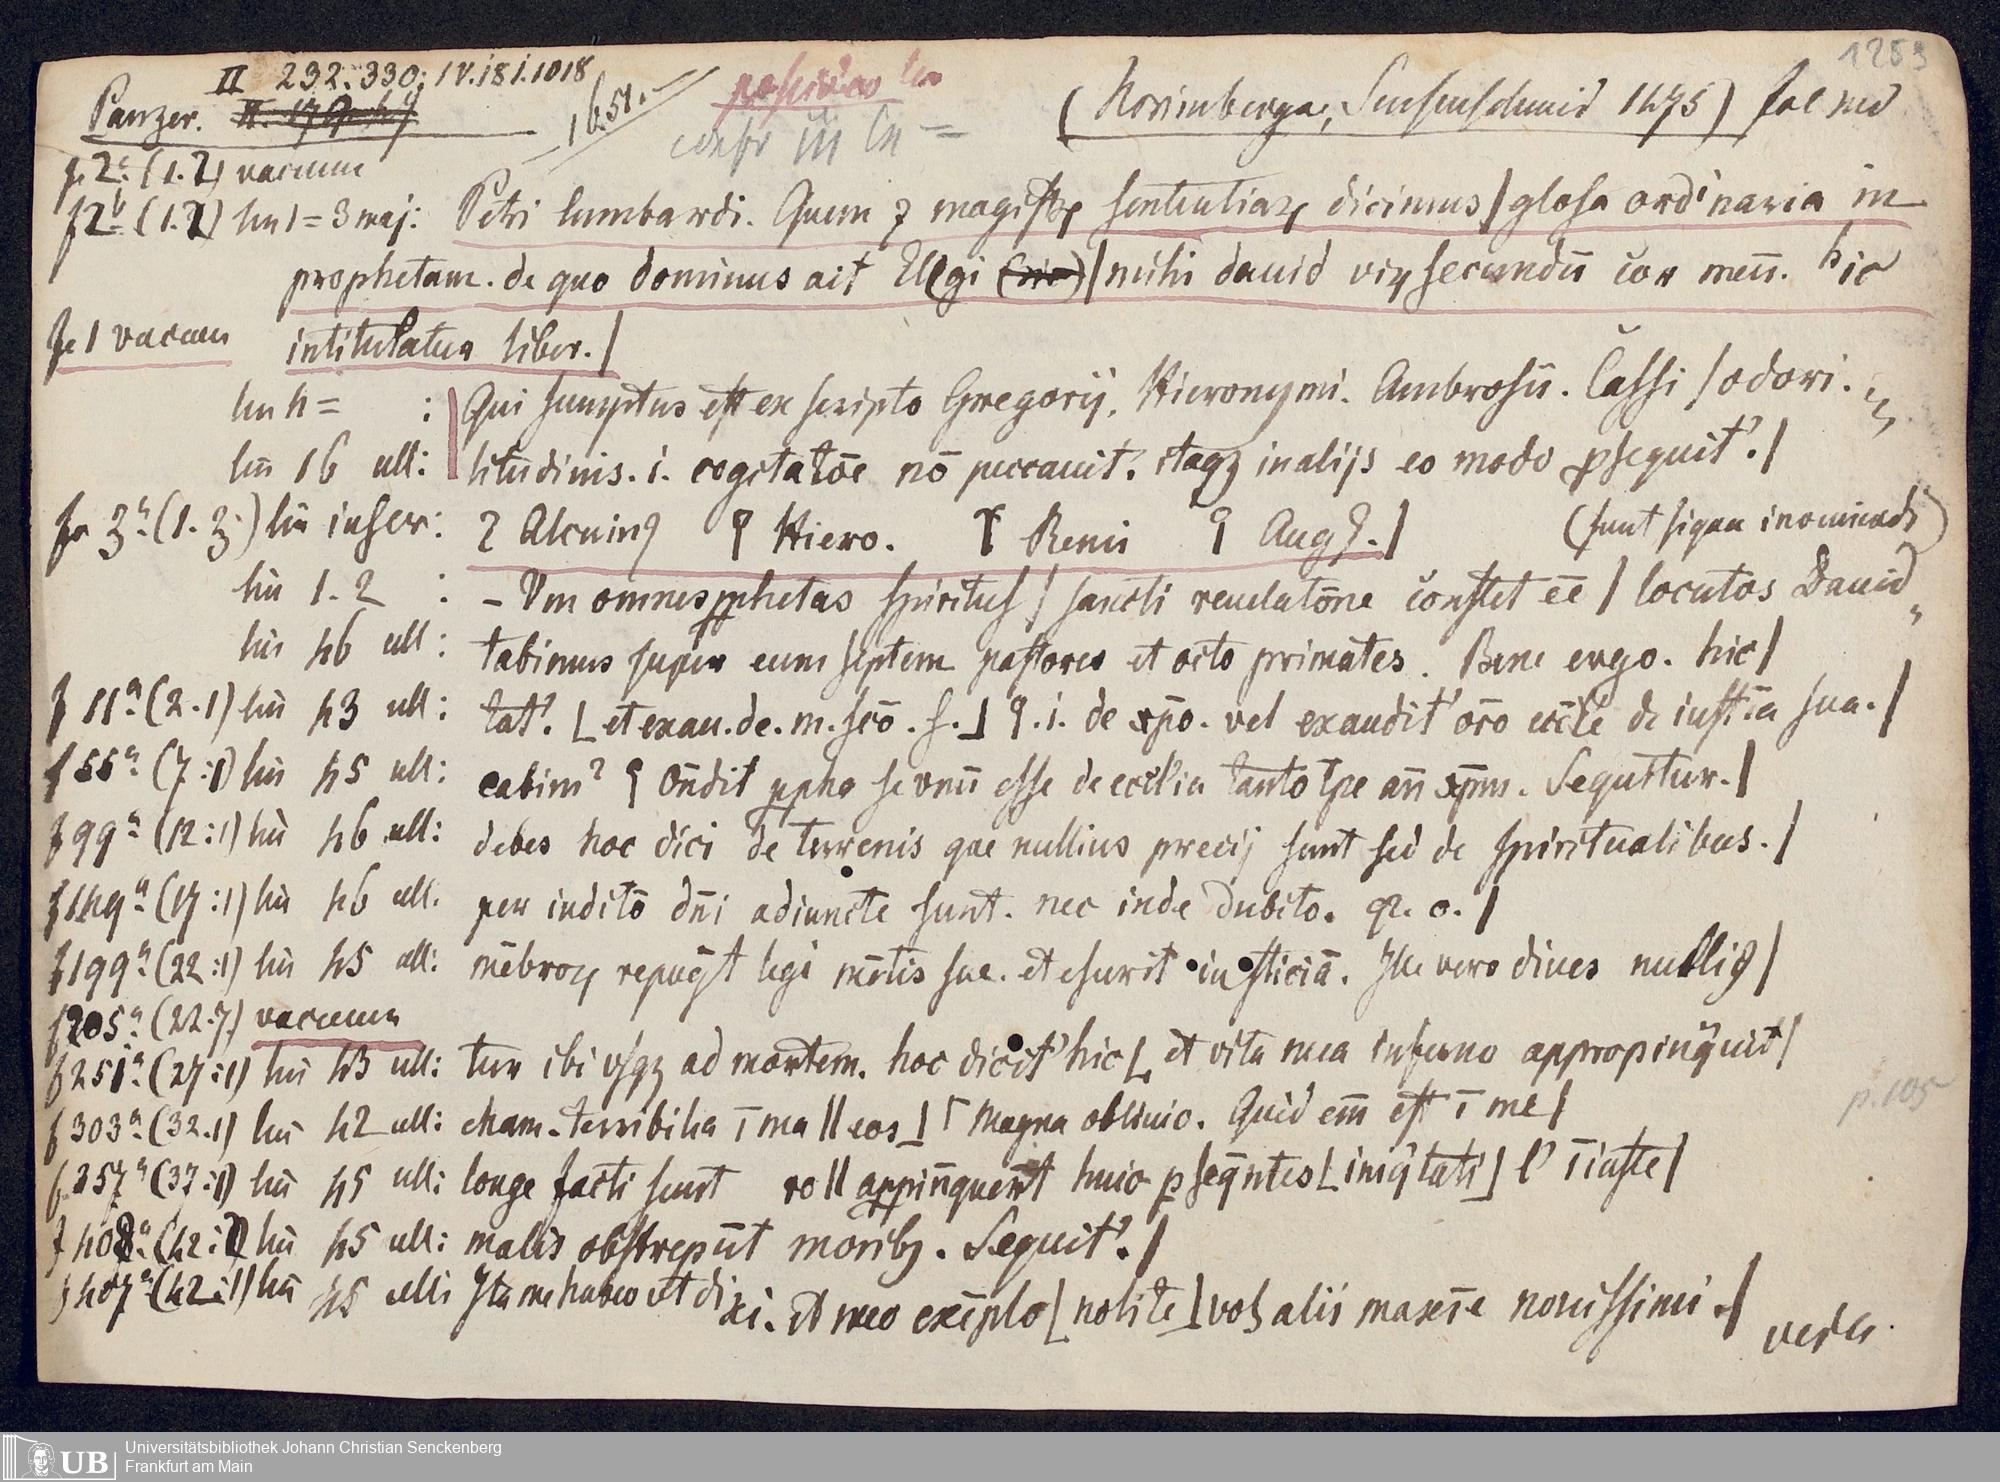 1253
II 232. 330; IV. 181. 1018
Panzer. 1651. (Norimbergae, Sensenschmid 1475) fol med
confr
f. 2ᵃ (1.2) vacuum
f. 2ᵇ (1.2) lin 1=3 maj: Petri lumbardi. Quem ⁊ magistꝝ sententiaꝝ dicimus/glosa ordinaria in
prophetam. de quo dominus ait Elegi /michi dauid viꝝ secundū cor meū. hic
f. 1 vacuum intitulatur liber./
lin 4= : Qui sumptus est ex scripto Gregorij. Hieronymi. Ambrosii. Cassi/odori.
lin 16 ult: litudinis. i. cogitatōe nō peccauit. itaqꝫ in alijs eo modo ꝓsequit'./
f. 3ᵃ (1.3) lin infer: Alcuinꝰ Hiero. Remi Augꝰ./ (sunt signa
lin 1.2 : -Vm omnes ꝓphetas spiritus/sancti reuelatōne constet eē/locutos Dauid
lin 46 ult: tabimus super eum septem pastores et octo primates. Bene ergo. hic/
f 11ᵃ (2.1) lin 43 ult: tat'. [et exau. de. m. scō. s.] .i. de xp̄o. vel exaudit' orō eccl'e de iusticīa sua./
f 55ᵃ (7:1) lin 45 ult: cabim' Oñdit ꝓpha se vnū esse de eccl'ia tanto tp̄e añ xp̄m. Sequitur./
f 99ᵃ (12:1) lin 46 ult: debes hoc dici de terrenis que nullius precij sunt sed de spiritualibus./
f 149ᵃ (17:1) lin 46 ult. per inditō dñi adiuncte sunt. nec inde dubito. qr. o./
f 199ᵃ (22:1) lin 45 ult: mēbroꝝ repugt legi mētis sue. et esurit iusticiā. Ille vero diues nulliꝰ/
f 205ᵃ (22:7) vacuum
f 251ᵃ (27:1) lin 43 ult: tur ibi vsqꝫ ad mortem. hoc dicit' hic [et vita mea inferno appropinquit/
p. 105
f 303ᵃ (32.1) lin 42 ult: etiam. terribilia ī ma || eos] Magna obliuio. Quid em̄ est ī me/
f. 357ᵃ (37:1) lin 45 ult: longe facti sunt ro || appīnquerūt huic ꝑseqntes [iniqtati] l' īiuste/
f 408ᵃ (42:2) lin 45 ult: malis obstrepūt moribꝫ. Sequit'./
f 407ᵃ (42:1) lin 45 ult: Ita me habeo vt di xi. Et meo exēplo [nolite] vos alii maxīe nouissimi./
verte.
UB Universitätsbibliothek Johann Christian Senckenberg
Frankfurt am Main